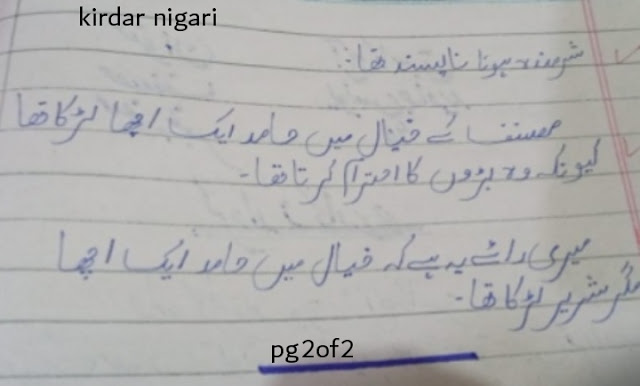 kirdar nigari
شرمندہ ہونا ناپسند تھا۔
مصنف کے خیال میں حامد ایک اچھا لڑکا تھا
کیونکہ وہ بڑوں کا احترام کرتا تھا۔
میری رائے یہ ہے کہ خیال میں حامد ایک اچھا
مگر شریر لڑکا تھا۔
pg2of2